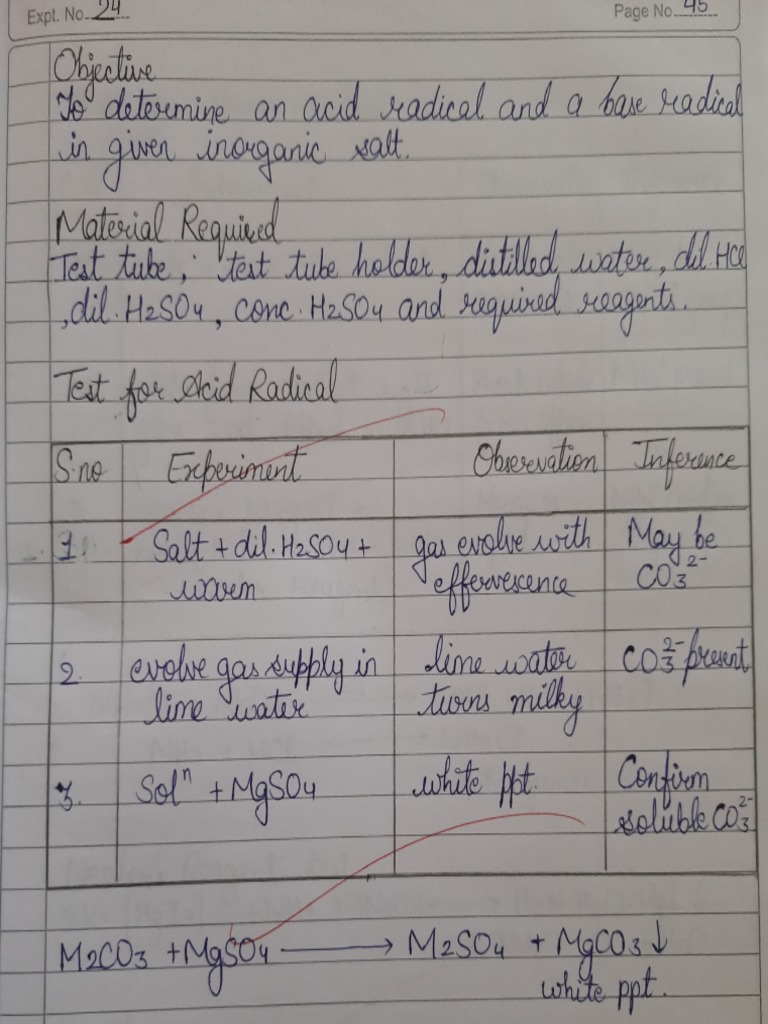 Expt. No. 24
Page No. 45
Objective
To determine an acid radical and a base radical
in given inorganic salt.
Material Required
Test tube, test tube holder, distilled water, dil. HCl
, dil. H2SO4, conc. H2SO4 and required reagents.
Test for Acid Radical
S.no Experiment Observation Inference
1. Salt + dil. H2SO4 + gas evolve with May be
warm effervescence CO3²⁻
2. evolve gas supply in lime water CO3²⁻ present
lime water turns milky
3. Solⁿ + MgSO4 white ppt. Confirm
soluble CO3²⁻
M2CO3 + MgSO4 ⟶ M2SO4 + MgCO3↓
white ppt.